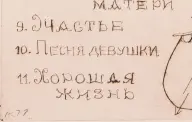 МАТЕРИ
9. УЧАСТЬЕ
10. ПЕСНЯ ДЕВУШКИ
11. ХОРОШАЯ
ЖИЗНЬ